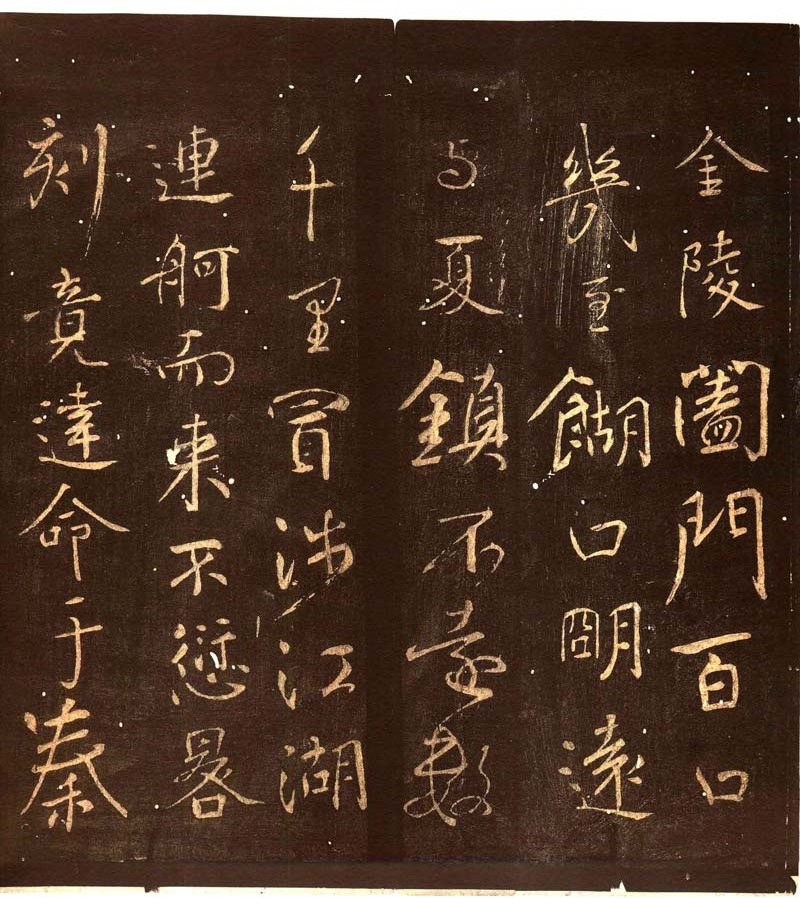 金陵闔門百口
幾至餬口明遠
与夏鎮不遠數
千里冒涉江湖
連舸而来不愆晷
刻竟達命于秦